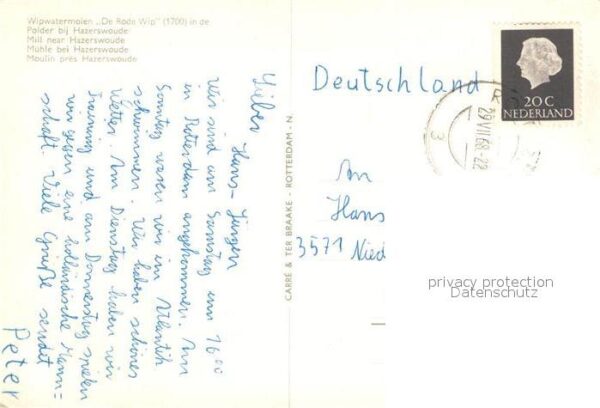 Wipwatermolen „De Rode Wip" (1700) in de
Polder bij Hazerswoude
Mill near Hazerswoude
Mühle bei Hazerswoude
Moulin près Hazerswoude
Lieber Hans-Jürgen
Wir sind am Samstag um 16 00
in Roterdam angekommen. Am
Sonntag waren wir im Atlantik
schwimmen. Wir haben schönes
Wetter. Am Dienstag haben wir
Training und am Donnerstag spielen
wir gegen eine holländische Mann=
schaft. Viele Grüße sendet
Peter
CARRÉ & TER BRAAKE - ROTTERDAM - N.
Deutschland
An
Hans
3571 Nied
20 C
NEDERLAND
29 VII 68-22
3
privacy protection
Datenschutz